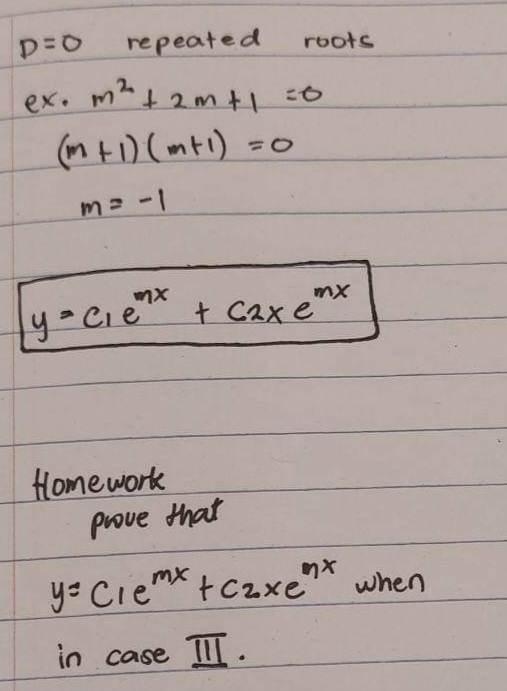 D=0 repeated roots
ex. m² + 2m + 1 = 0
(m+1)(m+1) = 0
m = -1
y = C1e^mx + C2xe^mx
Homework
prove that
y = C1e^mx + C2xe^mx when
in case III.